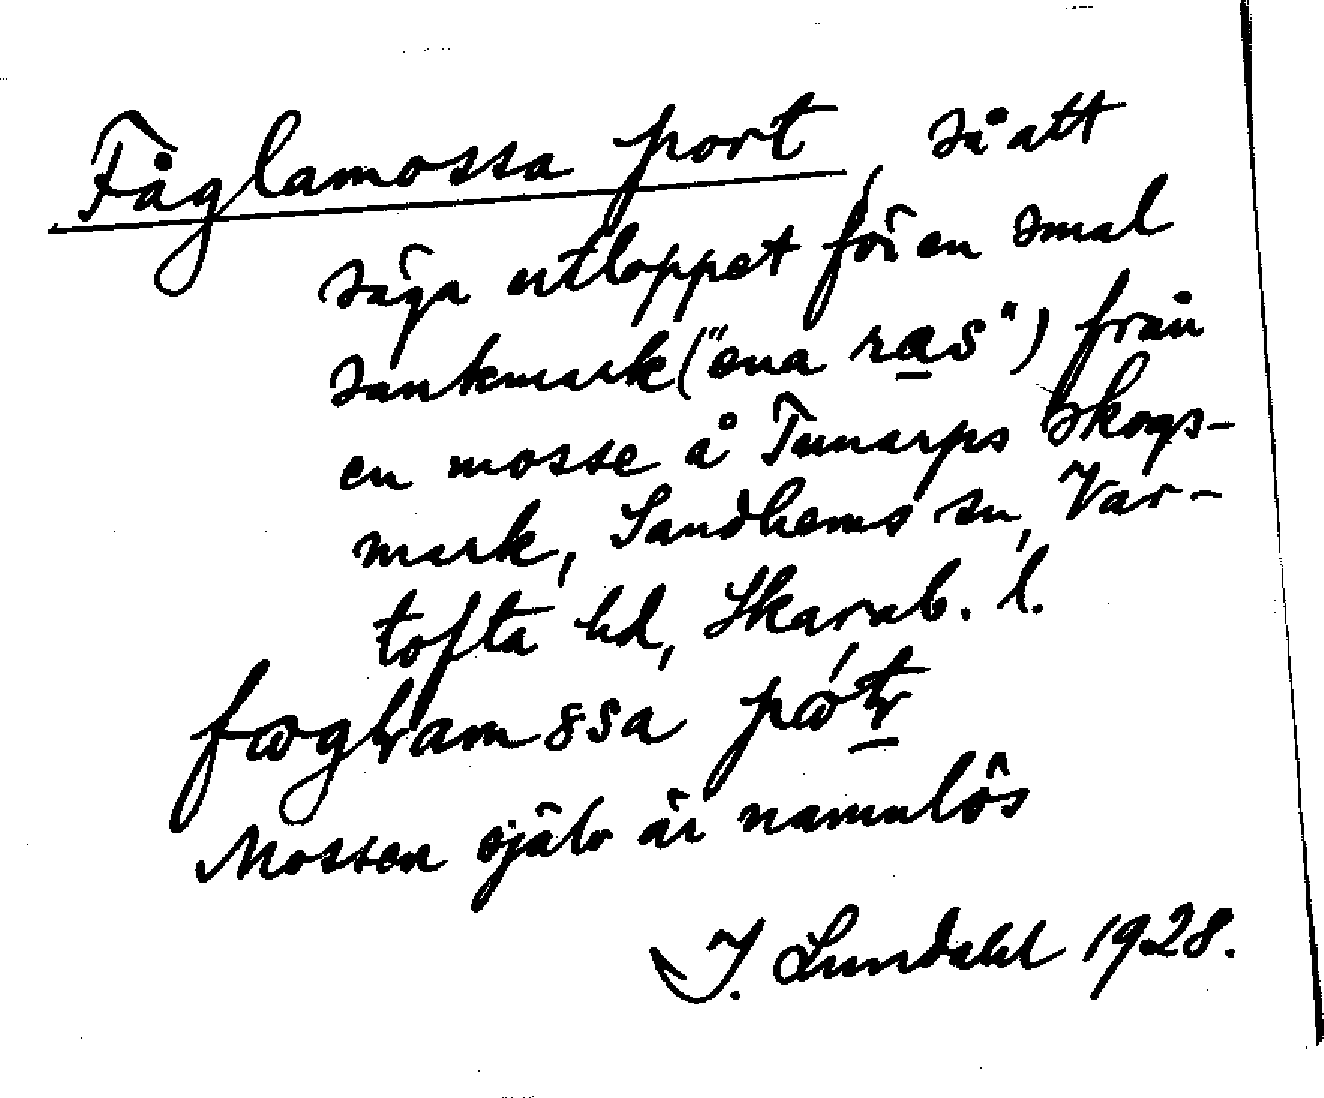 Fåglamossa port, så att
säga utloppet för en smal
sankmark ("ena ras") från
en mosse å Tunarps skogs-
mark, Sandhems sn, Var-
tofta hd, Skarab. l.
Mossen själv är namnlös
I. Lundahl 1928.